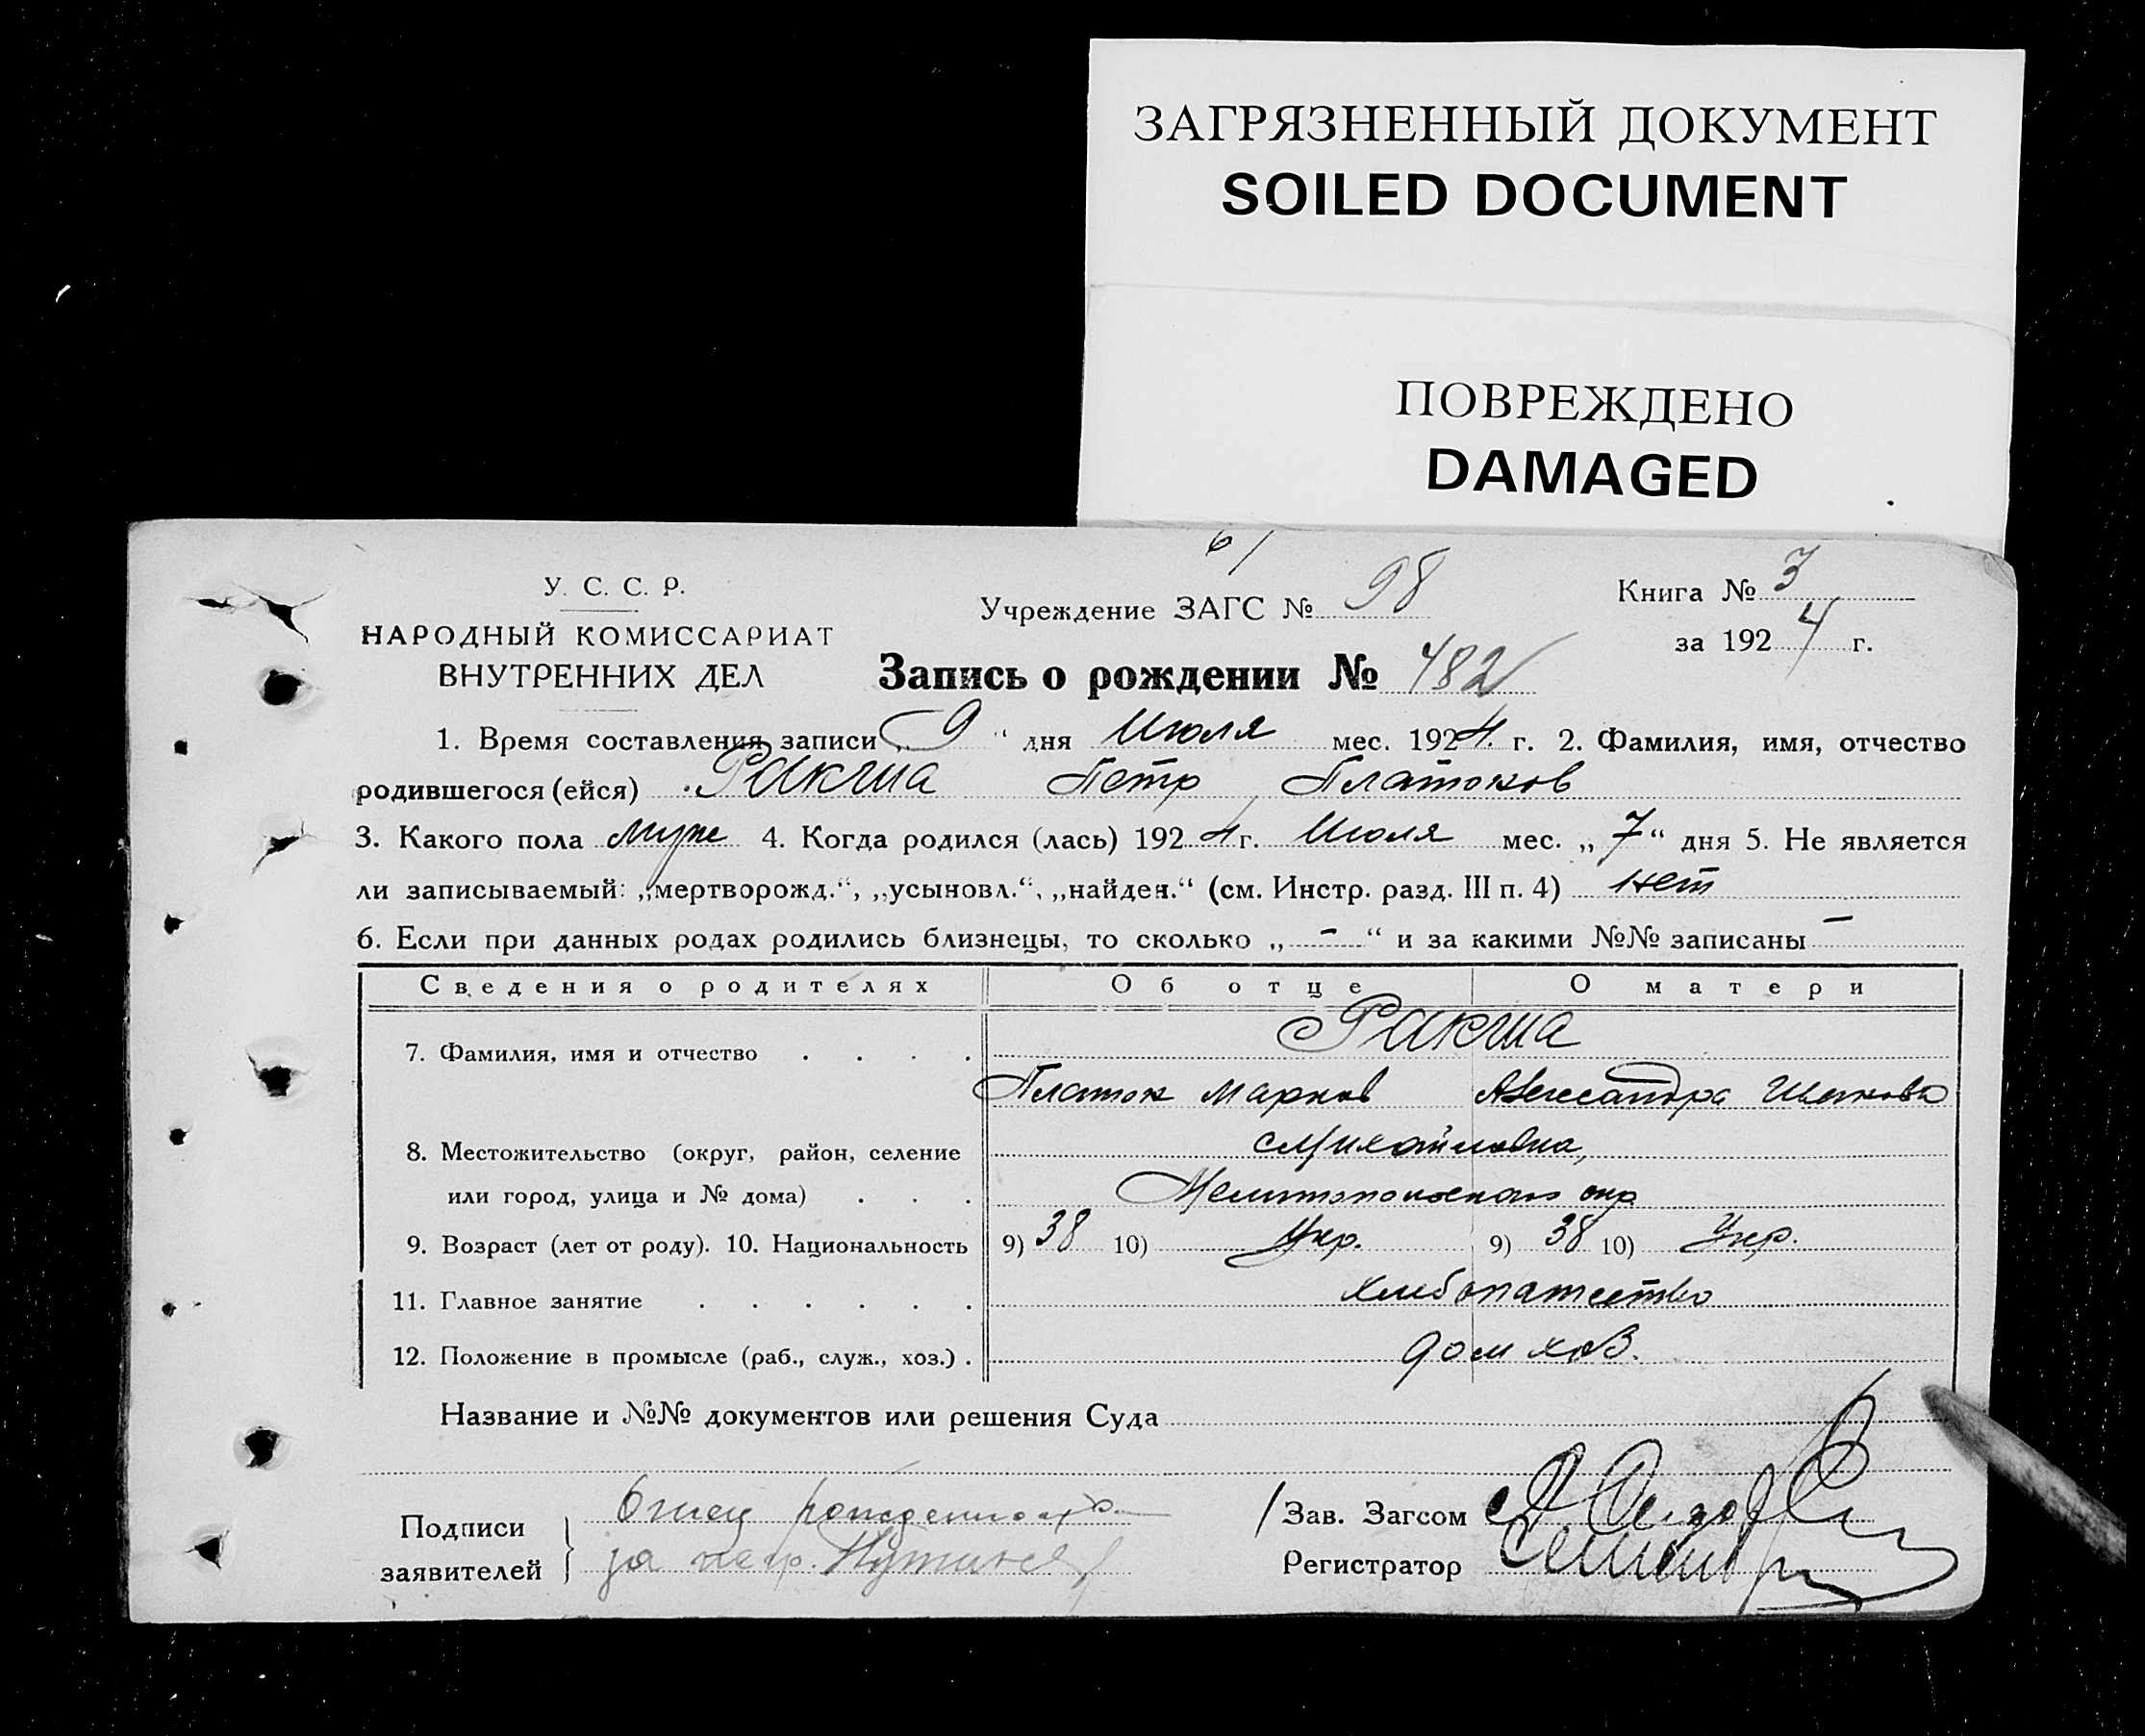 ЗАГРЯЗНЕННЫЙ ДОКУМЕНТ
SOILED DOCUMENT
ПОВРЕЖДЕНО
DAMAGED
У. С. С. Р.
НАРОДНЫЙ КОМИССАРИАТ
ВНУТРЕННИХ ДЕЛ
Учреждение ЗАГС № 98
Книга № 3
за 1924 г.
Запись о рождении № 482
1. Время составления записи „9“ дня Июля мес. 1924 г. 2. Фамилия, имя, отчество
родившегося (ейся) Ракша Петр Платонов
3. Какого пола муж 4. Когда родился (лась) 1924 г. Июля мес. „7“ дня 5. Не является
ли записываемый: „мертворожд.“, „усыновл.“, „найден.“ (см. Инстр. разд. III п. 4) нет
6. Если при данных родах родились близнецы, то сколько „-“ и за какими №№ записаны –
Сведения о родителях Об отце О матери
7. Фамилия, имя и отчество Ракша
Платон Марков Александра
8. Местожительство (округ, район, селение Михайловка,
или город, улица и № дома) Мелитопольского окр
9. Возраст (лет от роду). 10. Национальность 9) 38 10) Укр. 9) 38 10) Укр.
11. Главное занятие хлебопашество
12. Положение в промысле (раб., служ., хоз.) дом хоз.
Название и №№ документов или решения Суда
Подписи
заявителей
Отец рожденного
за негр.
Зав. Загсом
Регистратор